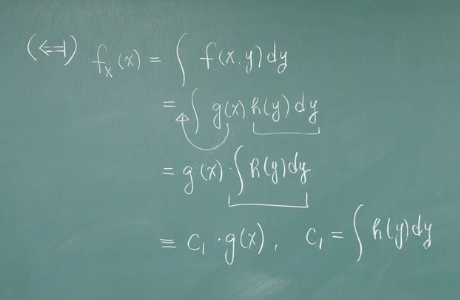 (⇐) f_X(x) = ∫ f(x,y)dy
= ∫ g(x) h(y) dy
= g(x) · ∫ h(y)dy
≡ C₁ · g(x), C₁ = ∫ h(y)dy